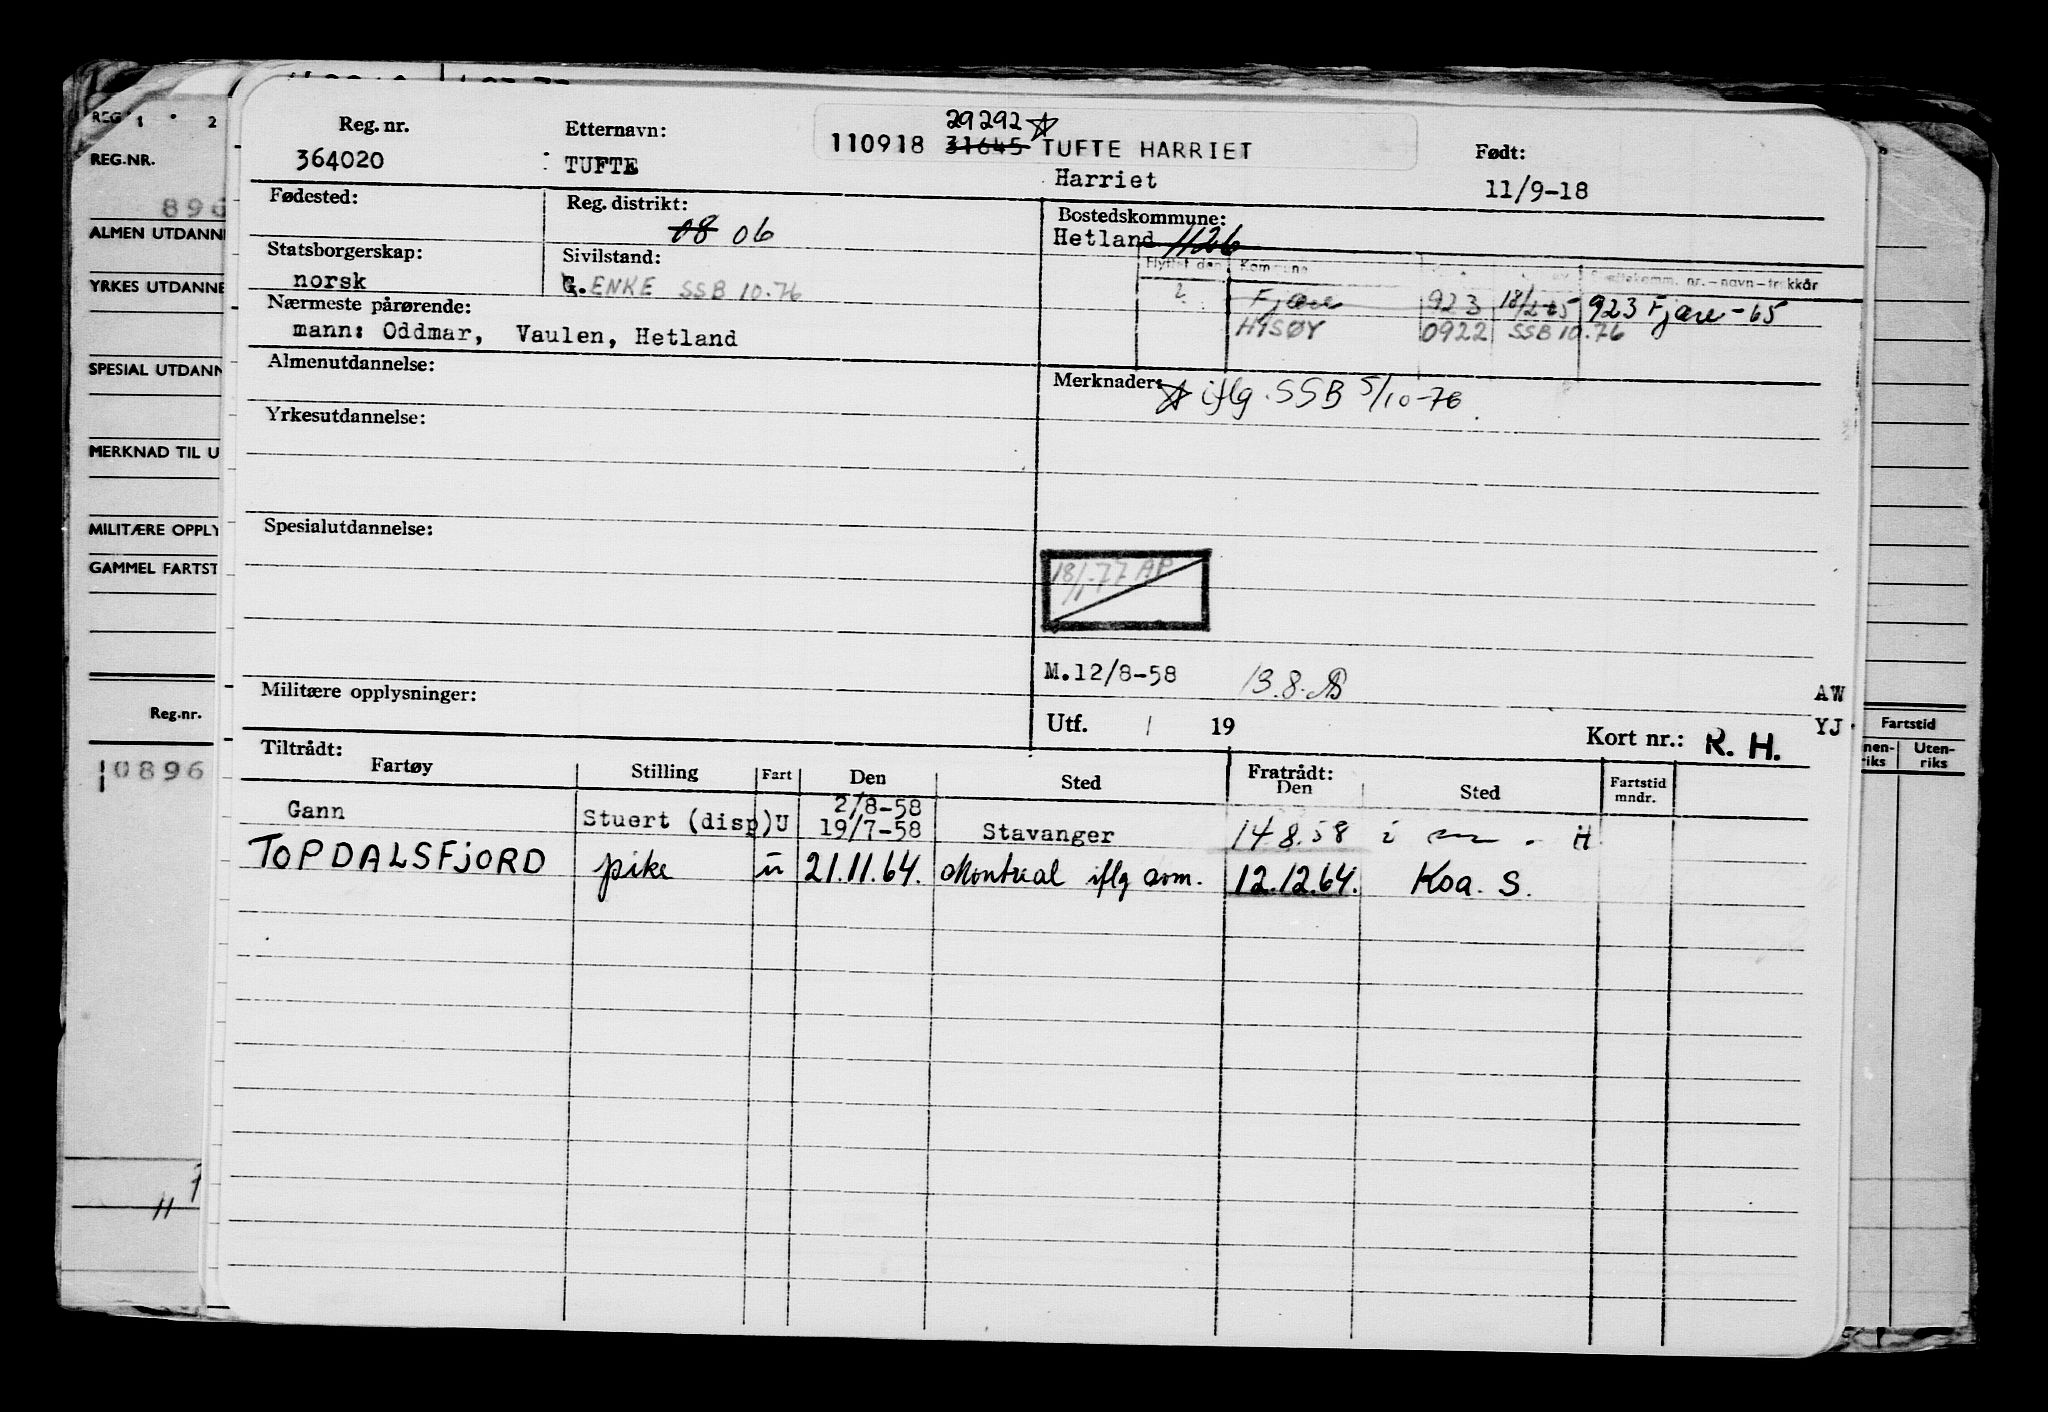 REG.NR.
896
ALMEN UTDANNE
YRKES UTDANNE
SPESIAL UTDANN
MERKNAD TIL U
MILITÆRE OPPLY
GAMMEL FARTST
Reg.nr.
0896
11
Reg. nr. Etternavn: 29292 ☆ Født:
364020 TUFTE 110918 31645 TUFTE HARRIET
Harriet 11/9-18
Fødested: Reg. distrikt: 08 06 Bostedskommune:
Hetland 1126
Statsborgerskap: norsk Sivilstand: G. ENKE SSB 10.76
Flyttet den Kommune
? Fjære 923 18/2-65 923 Fjære-65
HISØY 0922 SSB 10.76
Nærmeste pårørende:
mann: Oddmar, Vaulen, Hetland
Almenutdannelse: Merknader: ☆ iflg. SSB 5/10-76
Yrkesutdannelse:
Spesialutdannelse:
18/1-77 AP
M.12/8-58 13.8.
Militære opplysninger: AW
Utf. / 19 Kort nr.: R. H. YJ
Tiltrådt: Fratrådt:
Fartøy Stilling Fart Den Sted Den Sted Fartstid mndr.
Gann Stuert (disp) U 2/8-58
19/7-58 Stavanger 14.8.58 i H
TOPDALSFJORD pike u 21.11.64. Montreal iflg 12.12.64. Koa. S.
Fartstid
nen-
riks
Uten-
riks